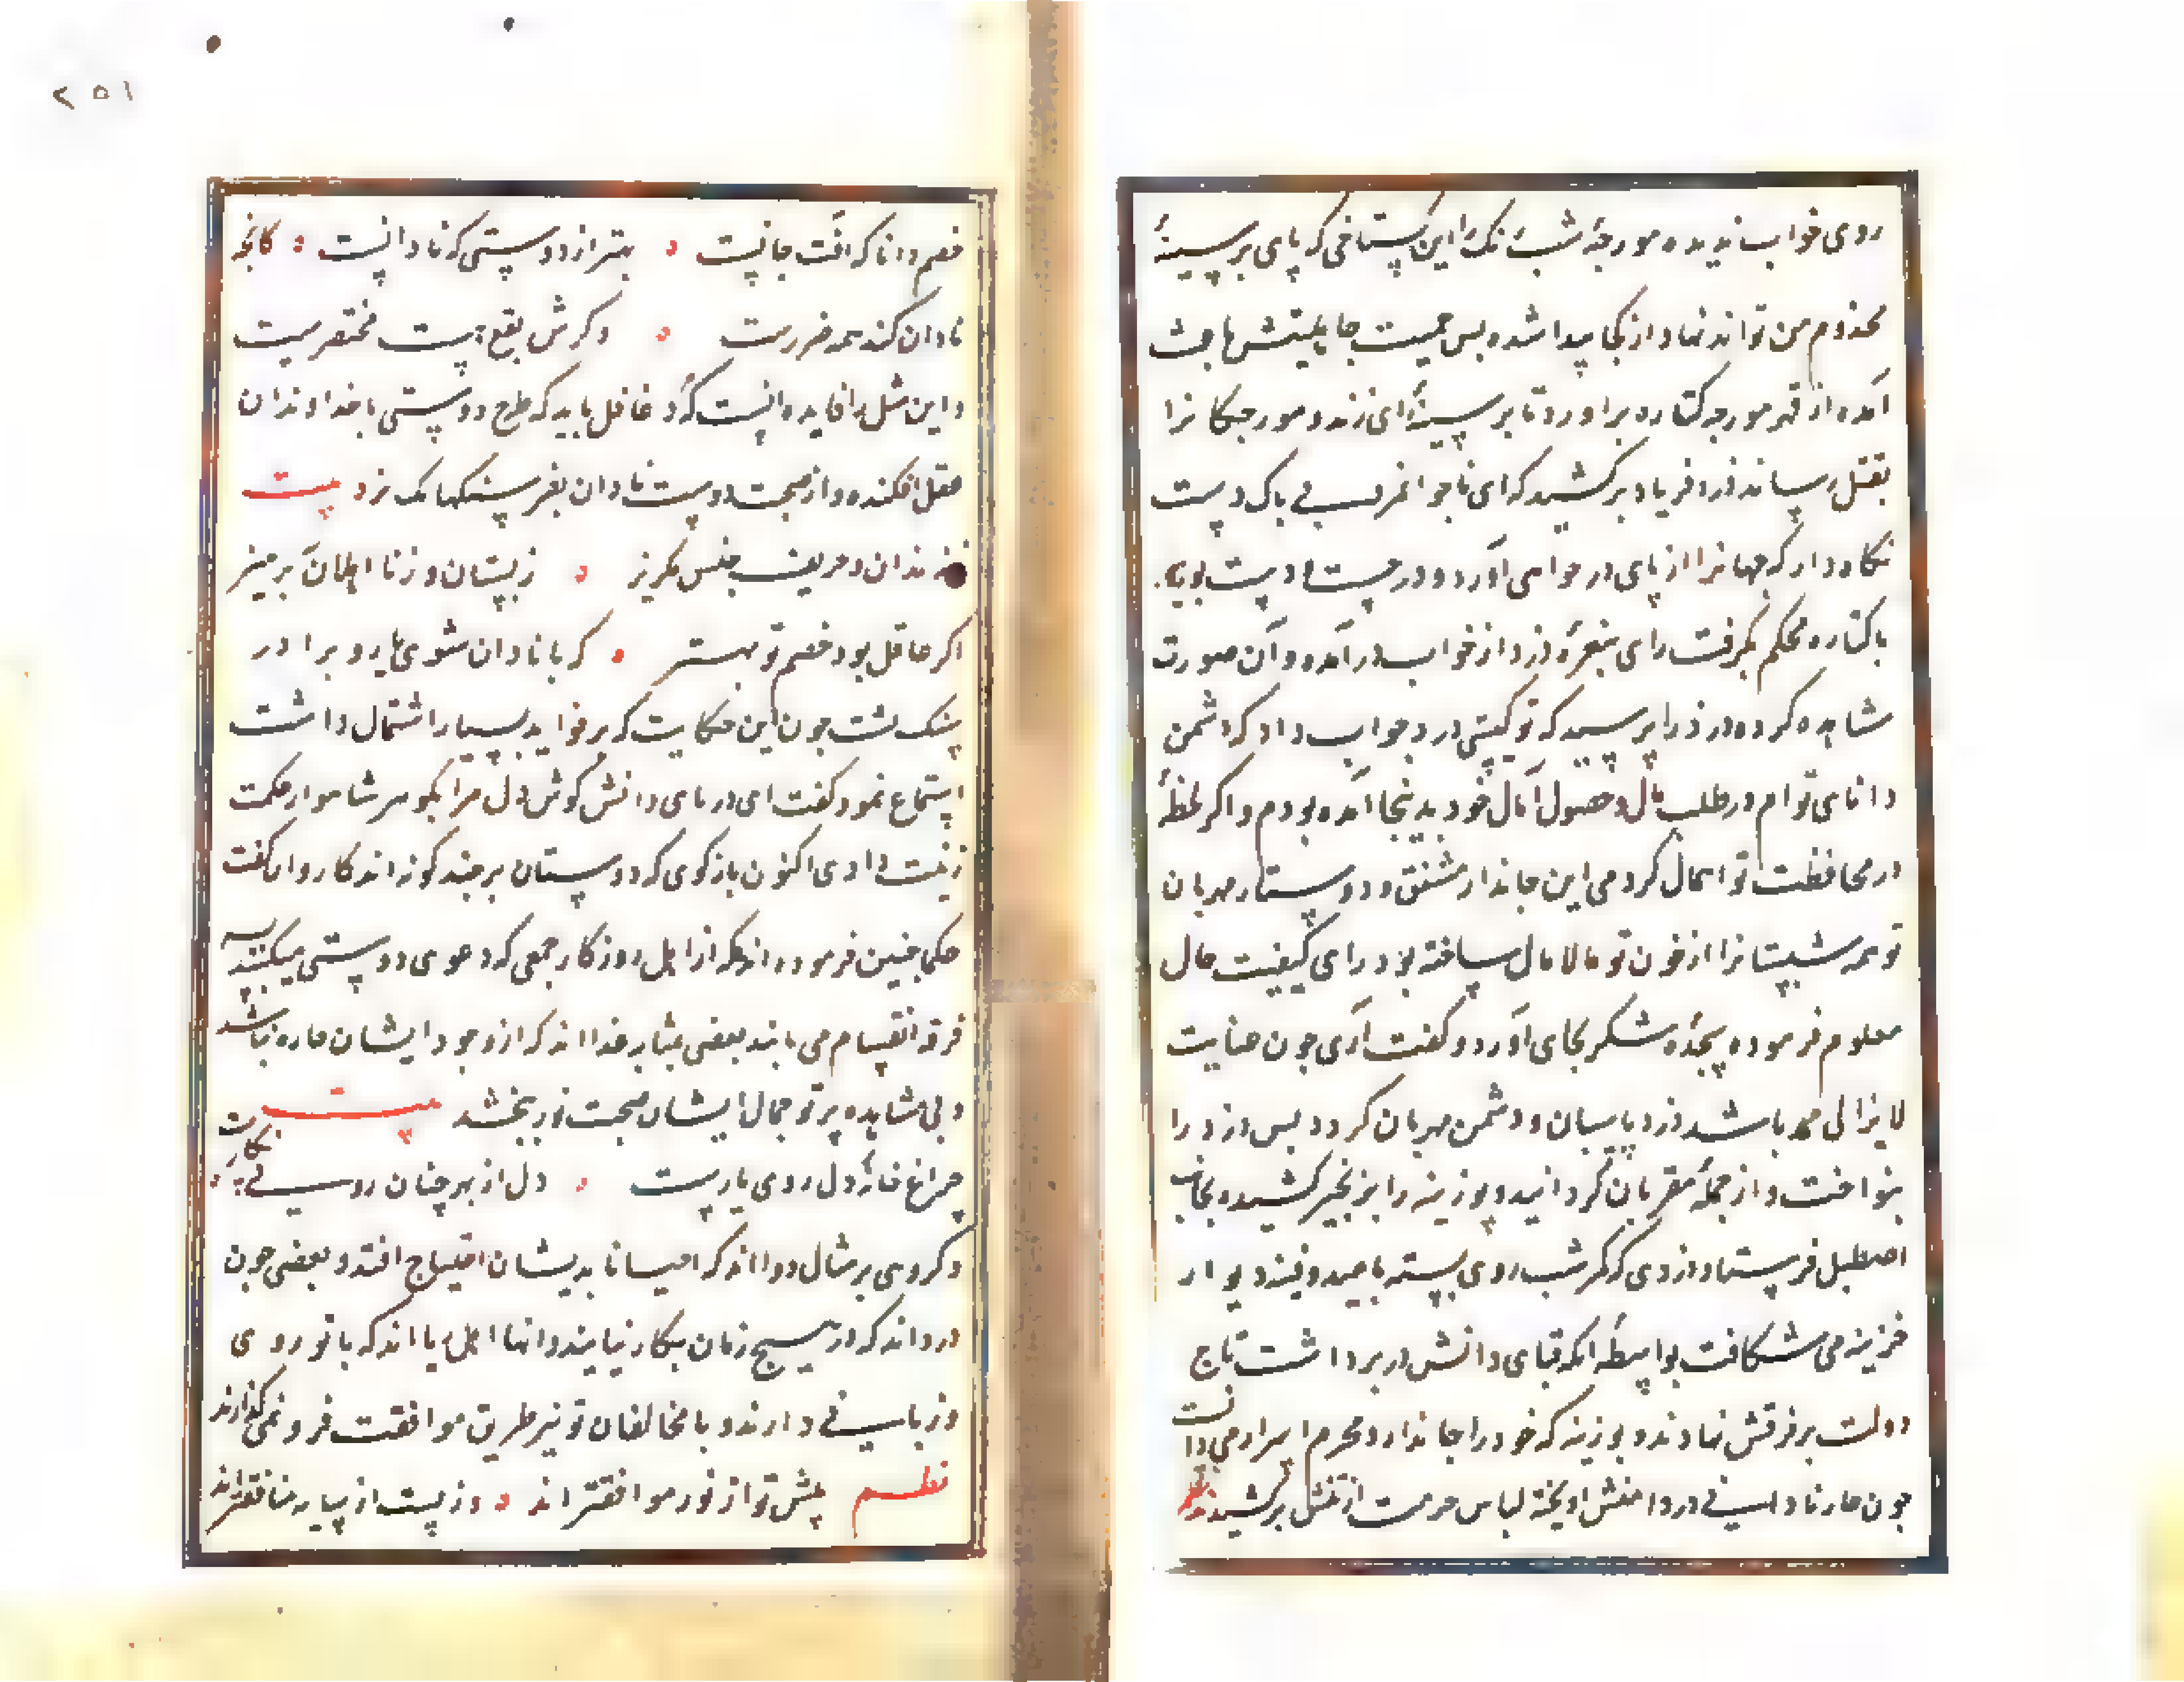 روی خواب ندیده مورچهٔ شب رنک را این کستاخی که پای بر سینهٔ
مخدوم من تواند نهاد از کجا پیدا شده پس حمیت جاهلیتش باعث
آمده از قهر مورچه کتاره برآورد تا بر سینهٔ رای زند و مورچکانرا
بقتل رساند دزد فریاد برکشید که ای ناجوانمرد بی باک دست
نکاه دار که جهانرا از پای در خواهی آورد و درجست و دست بوزینه
با کتاره محکم بکرفت رای بنعرهٔ دزد از خواب درآمده و آن صورت
مشاهده کرده دزد را پرسید که تو کیستی دزد جواب داد که دشمن
دانای توام در طلب مال و حصول آمال خود بدینجا آمده بودم و اکر لحظهٔ
در محافظت تو اهمال کردمی این جاندار مشفق و دوستار مهربان
تو همه شبستانرا از خون تو مالامال ساخته بود رای کیفیت حال
معلوم فرموده سجدهٔ شکر بجای آورد و کفت آری چون عنایت
لایزالی ممد باشد دزد پاسبان و دشمن مهربان کردد پس دزد را
بنواخت و از جملهٔ مقربان کردانید و بوزینه را بزنجیر کشیده بجانب
اصطبل فرستاد دزدی که کمر شب روی بسته بامید دفینه دیوار
خزینه می شکافت بواسطهٔ آنکه قبای دانش در برداشت تاج
دولت بر فرقش نهادند و بوزینه که خود را جاندار و محرم اسرار می دانست
چون خار نادانی در دامنش آویخته لباس حرمت از تنش برکشیدند نظم
۲۵۱
خصم دانا که آفت جانست بهتر از دوستی که نادانست کانچه
نادان کند همه ضررست ورکرش نفع نیست مختصریست
و این مثل را فایده آنست که مرد عاقل باید که طرح دوستی با خداوندان
عقل افکنده و از صحبت دوست نادان بفرسنکها بکریزد بیت
ز رندان و حریف جنس مکریز ز پستان و ز نااهلان بپرهیز
اکر عاقل بود خصم تو بهتر که با نادان شوی یار و برادر
سنک پشت چون این حکایت که بر فواید بسیار اشتمال داشت
استماع نمود کفت ای دریای دانش کوش دل مرا بکوهر شاهوار حکمت
زینت دادی اکنون بازکوی که دوستان بر چند کونه اند کاردان کفت
حکما چنین فرموده اند که از اهل روزکار جمعی که دعوی دوستی میکنند بسه
فرقه انقسام می یابند بعضی بمثابهٔ غذااند که از وجود ایشان چاره نباشد
و بی مشاهده پرتو جمال ایشان صحبت نور نبخشد بیت
چراغ خانهٔ دل روی یارست دل از بهر چنان روی نکارست
و کروهی بر مثال دوااند که احیانا بدیشان احتیاج افتد و بعضی چون
درداند که در هیچ زمان بکار نیایند و آنها اهل ریااند که با تو روی
و زبانی دارند و با مخالفان تو نیز طریق موافقت فرو نمی کذارند
نظم پیش تو از نور موافقتراند وز پست از سایه منافقتراند